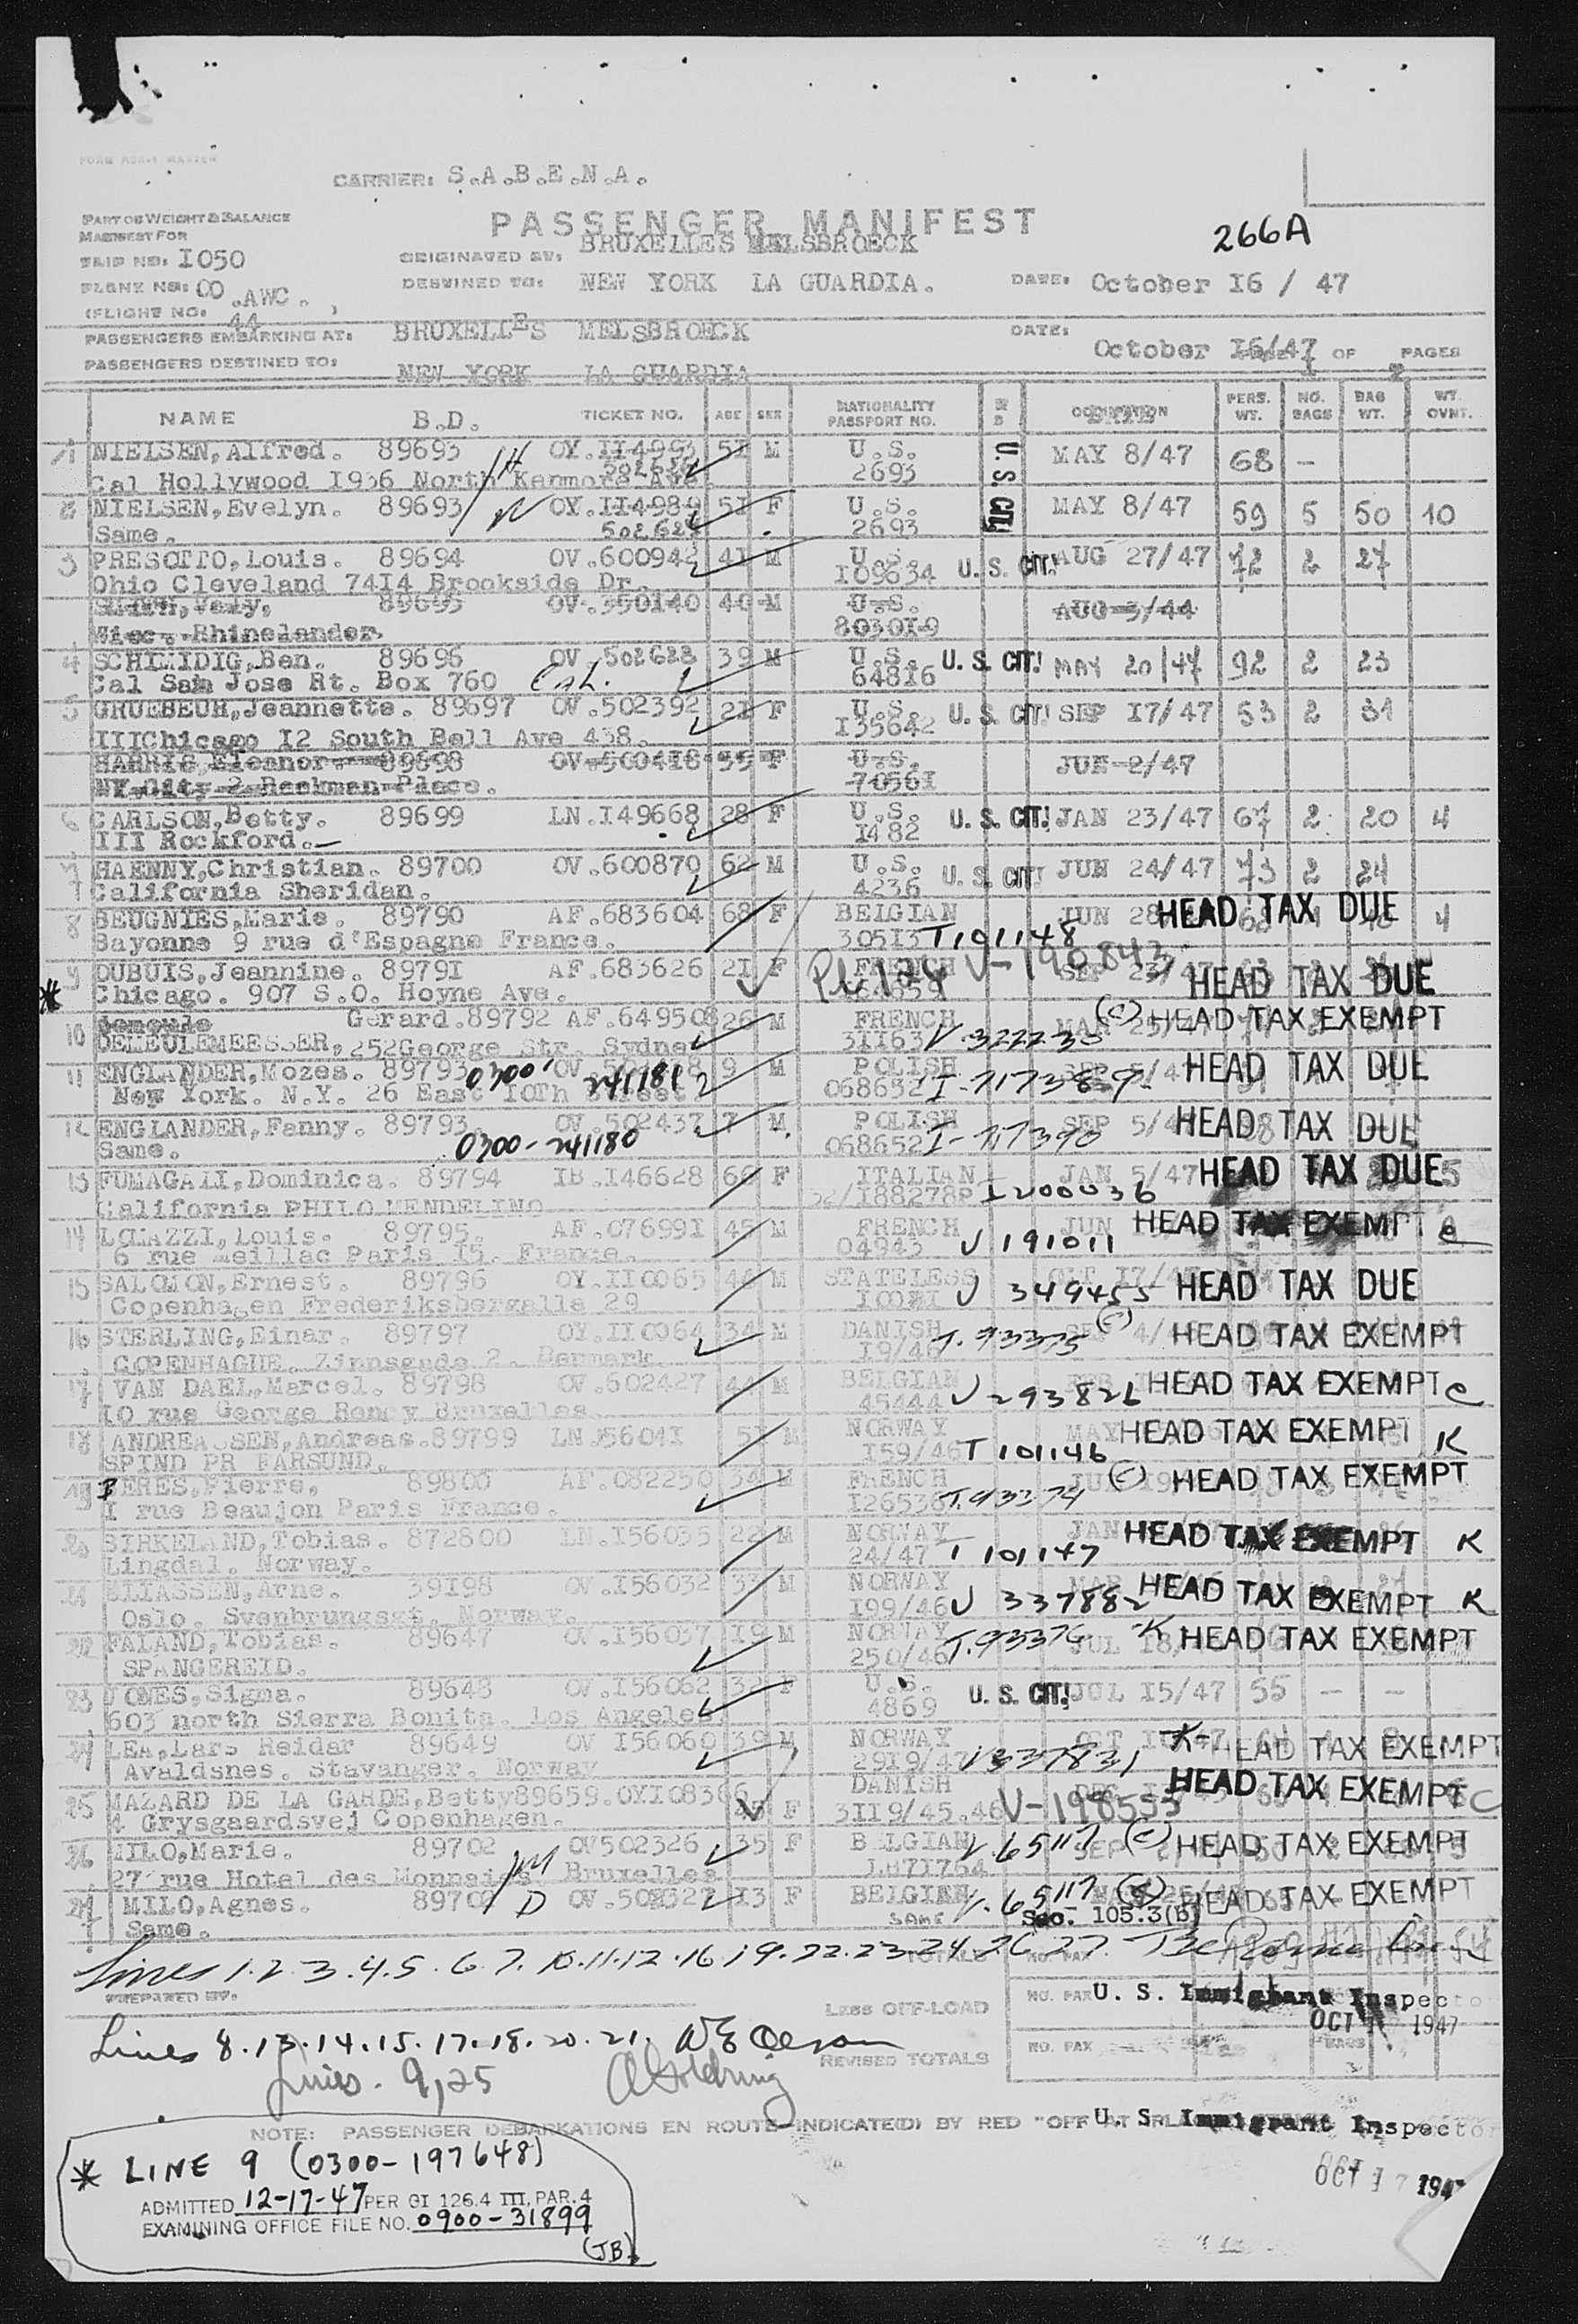 FORM MASTER
CARRIER: S.A.B.E.N.A.
PART OF WEIGHT & BALANCE
MANIFEST FOR
PASSENGER MANIFEST
266A
TRIP NO: I050
ORIGINATED AT: BRUXELLES MELSBROECK
PLANE NO: OO .AWC.
DESTINED TO: NEW YORK LA GUARDIA.
DATE: October I6 / 47
(FLIGHT NO: 44 )
PASSENGERS EMBARKING AT: BRUXELLES MELSBROECK
DATE: October I6/47
PASSENGERS DESTINED TO: NEW YORK LA GUARDIA
PAGE I OF 2 PAGES
NAME B.D. TICKET NO. AGE SEX NATIONALITY PASSPORT NO. OCCUPATION PERS. WT. NO. BAGS BAG WT. WT. OVNT.
1 NIELSEN, Alfred. 89693 OY.II4993 5I M U.S. U. S. CIT! MAY 8/47 68 –
H 502636 2693
Cal Hollywood I936 North Kenmore Ave.
2 NIELSEN, Evelyn. 89693 OY.II4989 5I F U.S. MAY 8/47 59 5 50 10
Same. W 502624 2693
3 PRESOTTO, Louis. 89694 OV.600942 4I M U.S. U. S. CIT! AUG 27/47 72 2 27
Ohio Cleveland 74I4 Brookside Dr. I09634
89695 OV.550I40 40 M U.S. AUG 3/44
Wisc. Rhinelander. 8030I-9
4 SCHIMIDIG, Ben. 89696 OV.502623 39 M U.S. U. S. CIT! MAY 20/47 92 2 23
Cal San Jose Rt. Box 760 Cal. 648I6
5 GRUEBEUH, Jeannette. 89697 OV.502392 2I F U.S. U. S. CIT! SEP I7/47 53 2 31
IIIChicago I2 South Bell Ave 438. I35642
HARRIS, Eleanor 89698 OV.5004I8 55 F U.S. JUE 2/47
NY City 2 Beekman Place. 7056I
6 CARLSON, Betty. 89699 LN.I49668 28 F U.S. U. S. CIT! JAN 23/47 67 2 20 4
III Rockford. I482
7 HAENNY, Christian. 89700 OV.600870 62 M U.S. U. S. CIT! JUN 24/47 73 2 24
California Sheridan. 4236
8 BEUGNIES, Marie. 89790 AF.683604 68 F BELGIAN JUN 28 HEAD TAX DUE 4
Bayonne 9 rue d'Espagne France. 305I3 T101148
9 DUBUIS, Jeannine. 8979I AF.683626 2I F FRENCH V-190843 SEP 23/47 HEAD TAX DUE
* Chicago. 907 S.O. Hoyne Ave.
10 Gerard. 89792 AF.649508 26 M FRENCH MAR 25/4 (C) HEAD TAX EXEMPT
DEMEULEMEESSER, 252George Str. Sydney 3II63 V.322230
11 ENGLANDER, Mozes. 89793 9 M POLISH SEP 5/47 HEAD TAX DUE
New York. N.Y. 26 East IOTh Street 0300, 241181 068632 I-717389
12 ENGLANDER, Fanny. 89793. OV.502437 7 M POLISH SEP 5/4 HEAD TAX DUE
Same. 0300-241180 068652 I-717390
13 FUMAGALI, Dominica. 89794 IB.I46628 66 F ITALIAN JAN 5/47 HEAD TAX DUE 5
California PHILO MENDELINO 32/I88278P I200036
14 LOMAZZI, Louis. 89795. AF.07699I 45 M FRENCH JUN HEAD TAX EXEMPT C
6 rue Meillac Paris I5. France. 04943 V 191011
15 SALOMON, Ernest. 89796 OY.II0065 46 M STATELESS OCT I7/4 HEAD TAX DUE
Copenhagen Frederiksbergalle 29 V 349455
16 STERLING, Einar. 89797 OY.II0064 34 M DANISH SEP 4/4 (C) HEAD TAX EXEMPT
COPENHAGUE. Zinnsgade 2. Denmark. I9/46 T.93375
17 VAN DAEL, Marcel. 89798 OV.602427 44 M BELGIAN HEAD TAX EXEMPT C
IO rue George Rency Bruxelles 45444 V 293826
18 ANDREASSEN, Andreas. 89799 LN.I5604I 5I M NORWAY MAY HEAD TAX EXEMPT K
SPIND PR FARSUND. I59/46 T 101146
19 BERES, Pierre, 89800 AF.082250 34 M FRENCH JUL I9 (C) HEAD TAX EXEMPT
I rue Beaujon Paris France. I26536 T.93374
20 BIRKELAND, Tobias. 872800 LN.I56035 22 M NORWAY JAN HEAD TAX EXEMPT K
Lingdal. Norway. 24/47 T 101147
21 ELIASSEN, Arne. 39I98 OV.I56032 33 M NORWAY MAR HEAD TAX EXEMPT K
Oslo. Svenbrungsgt. Norway. I99/46 V 337882
22 FALAND, Tobias. 89647 OV.I56037 I9 M NORWAY JUL I8, K HEAD TAX EXEMPT
SPANGEREID. 250/46 T.93376
23 JONES, Signa. 89648 OV.I56062 32 F U.S. U. S. CIT! JUL I5/47 55 – –
603 north Sierra Bonita. Los Angeles. 4869
24 LEA, Lars Reidar 89649 OV I56060 39 M NORWAY OCT 47 K- HEAD TAX EXEMPT
Avaldsnes. Stavanger. Norway 29I9/47 V337831
25 MAZARD DE LA GARDE, Betty89659.OYI08366 F DANISH DEC HEAD TAX EXEMPT C
4 Grysgaardsvej Copenhagen. 3II9/45.46 V-198555
26 MILO, Marie. 89702 OV502326 35 F BELGIAN V.65117 SEP (C) HEAD TAX EXEMPT
27 rue Hotel des Monnaies Bruxelles M LH71764
27 MILO, Agnes. 89702 D OV.502327 I3 F BELGIAN V.65117 (C) HEAD TAX EXEMPT
Same. SAME Sec. 105.3(b)
Lines 1.2.3.4.5.6.7.10.11.12.16.19.22.23.24.26.27
TOTALS NO. PAX
PREPARED BY:
LESS OFF-LOAD NO. PAX U. S. Immigrant Inspector
OCT 1947
Lines 8.13.14.15.17.18.20.21. W E Olson
REVISED TOTALS NO. PAX BAGS
Lines. 9, 25 A Goldring
NOTE: PASSENGER DEBARKATIONS EN ROUTE INDICATE(D) BY RED "OFF AT U. S. Immigrant Inspector
OCT 17 1947
* LINE 9 (0300-197648)
ADMITTED 12-17-47 PER GI 126.4 III, PAR. 4
EXAMINING OFFICE FILE NO. 0900-31899
(JB)